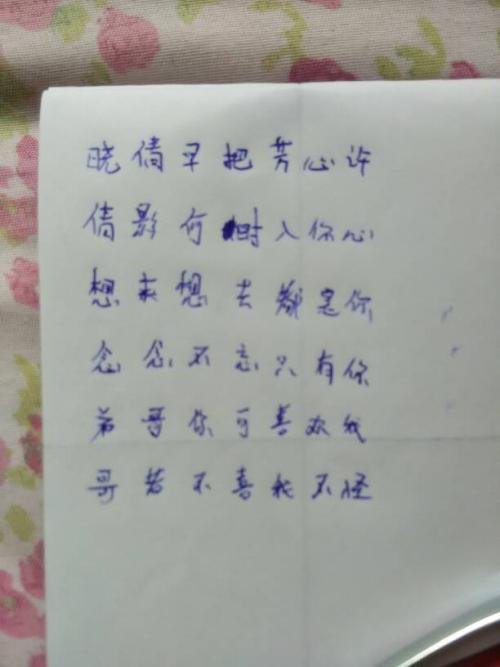 晓倩早把芳心许
倩影何时入你心
想来想去都是你
念念不忘只有你
弟哥你可喜欢我
哥若不喜我不怪